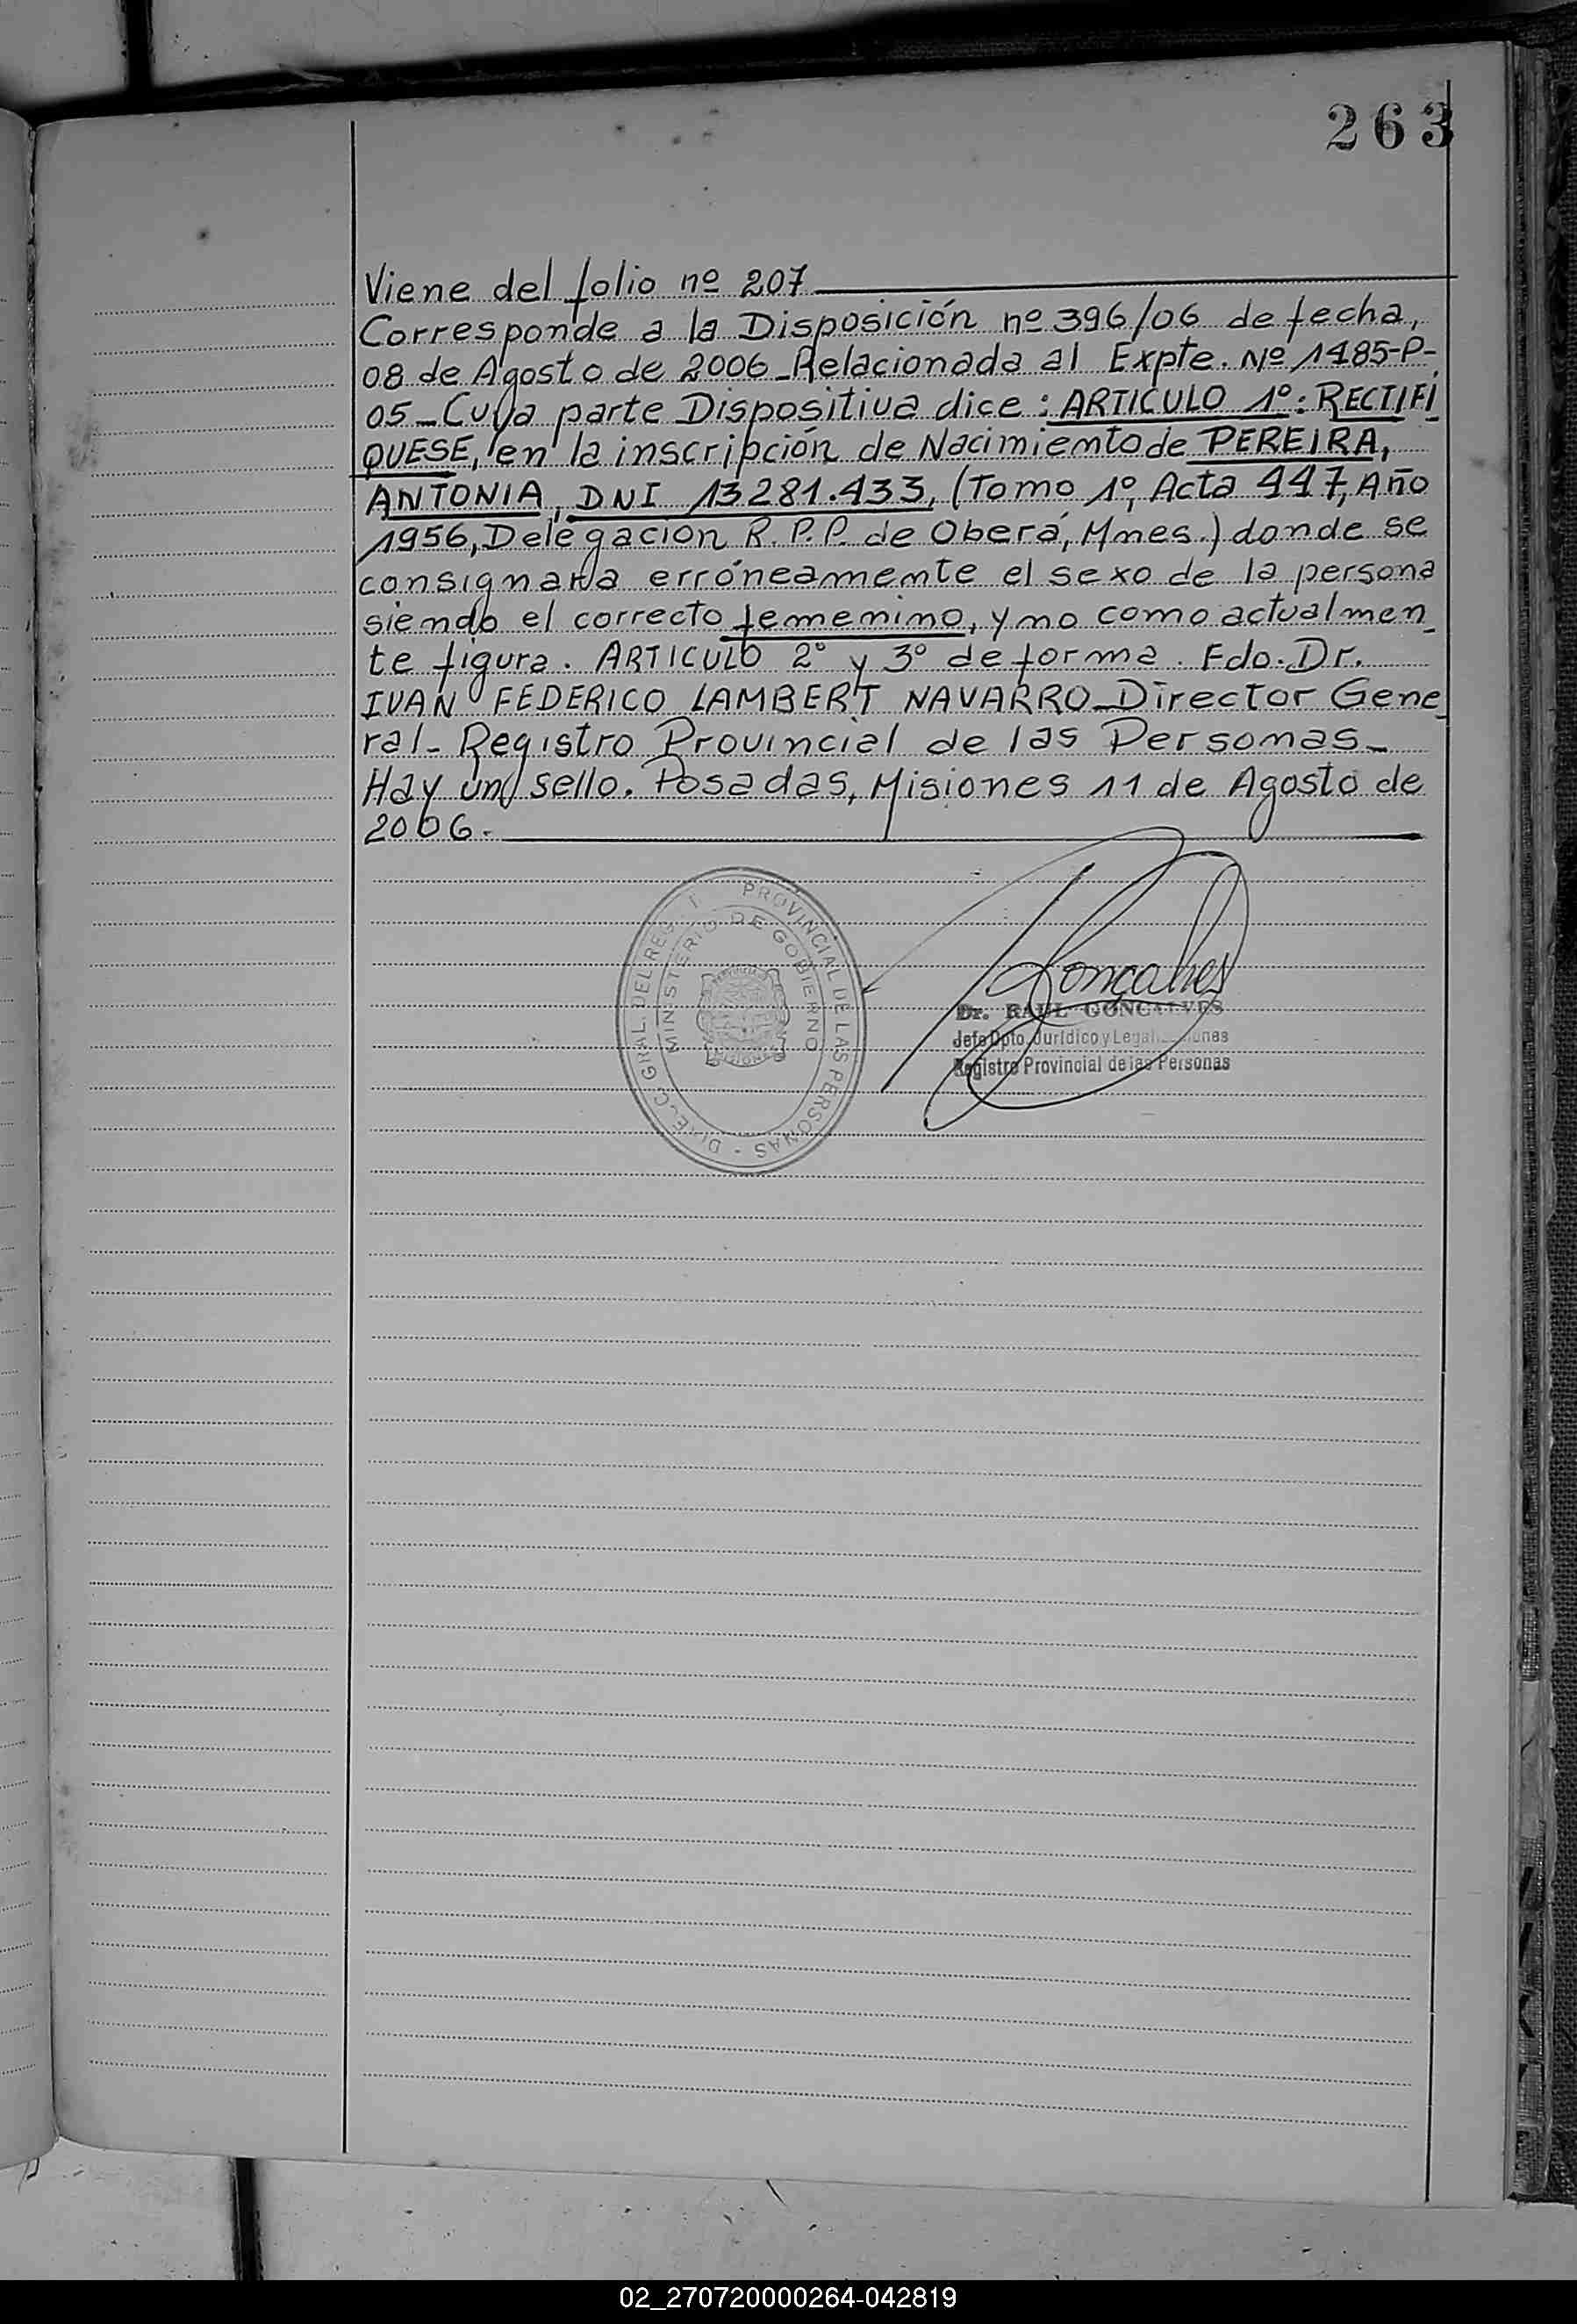 263
Viene del folio nº 207
Corresponde a la Disposición nº 396/06 de fecha,
08 de Agosto de 2006_Relacionada al Expte. Nº 1485-P-
05_Cuya parte Dispositiva dice: ARTICULO 1º: RECTIFI_
QUESE, en la inscripción de Nacimiento de PEREIRA,
ANTONIA, DNI 13281.433, (Tomo 1º, Acta 447, Año
1956, Delegación R.P.P. de Oberá, Mnes.) donde se
consignara erróneamente el sexo de la persona
siendo el correcto femenino, y no como actualmen_
te figura. ARTICULO 2º y 3º de forma. Fdo. Dr.
IVAN FEDERICO LAMBERT NAVARRO_Director Gene_
ral_Registro Provincial de las Personas_
Hay un sello. Posadas, Misiones 11 de Agosto de
2006.-
PROVINCIAL DE LAS PERSONAS
MINISTERIO DE GOBIERNO
MISIONES
Goncalves
Dr. RAUL GONCALVES
Jefe Dpto. Jurídico y
Registro Provincial de las Personas
02_270720000264-042819